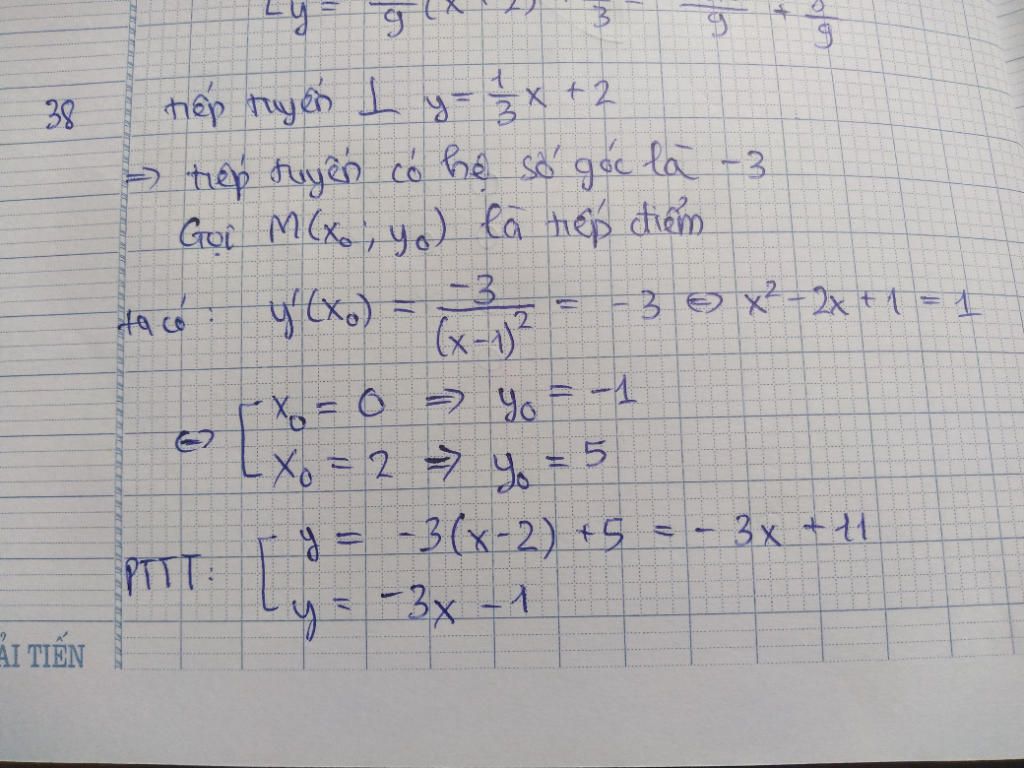 y = /9 (x + 2) + /3 = /9 + 8/9
38 tiếp tuyến ⊥ y = 1/3 x + 2
=> tiếp tuyến có hệ số góc là -3
Gọi M(x₀; y₀) là tiếp điểm
ta có: y'(x₀) = -3/(x-1)² = -3 <=> x² - 2x + 1 = 1
<=> [ x₀ = 0 => y₀ = -1
x₀ = 2 => y₀ = 5
PTTT: [ y = -3(x-2) + 5 = -3x + 11
y = -3x - 1
ẢI TIẾN